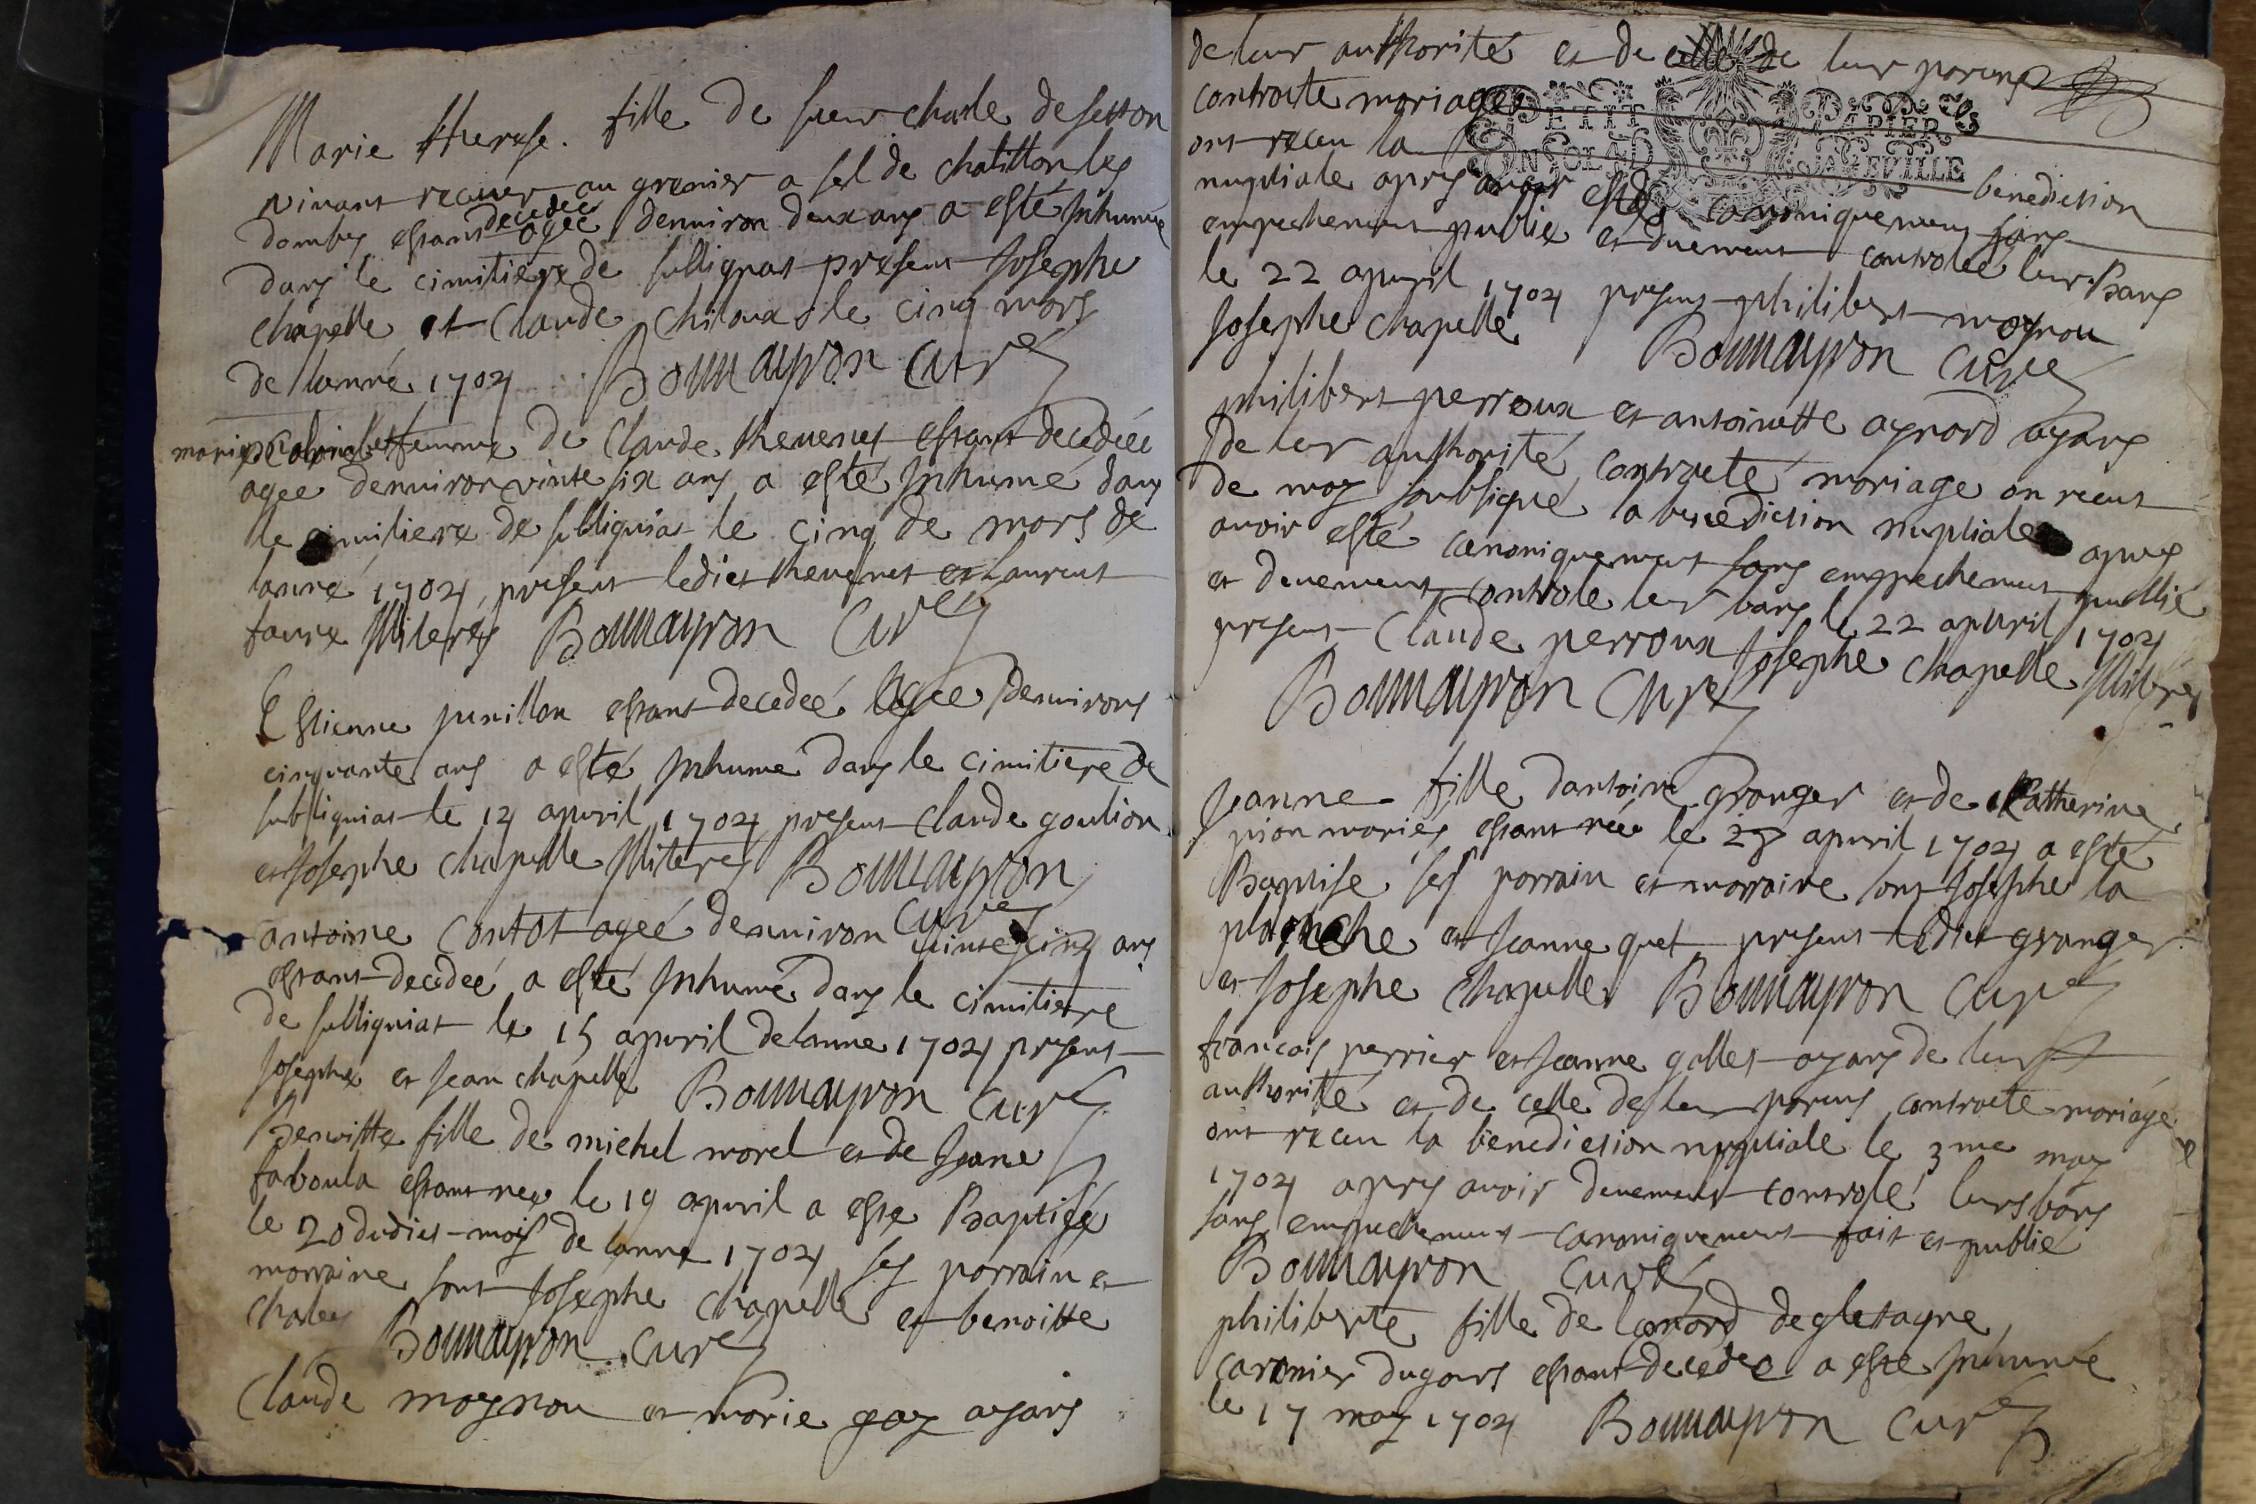 Marie therese. fille de sieur charle desetton
vivant receveur au grenier a sel de chatillon les
dombes estant decedeé ageé denviron deux ans a esté Inhumé
dans le cimitiere de sulligniat present Josephe
chapelle et Claude Chiloux le cinq mars
de lanné 1704 Bonnayron Curé
marie femme de Claude thevenet estant decedeé
agee denviron vinte six ans a esté Inhumé dans
le cimitiere de sulligniat le cinq de mars de
lanné 1704 present ledict thevenet et laurent
faure Illiterés Bonnayron Curé
Estienne punillon estant decedeé agee denvirons
cinquante ans a esté Inhumé dans le cimitiere de
sulligniat le 14 apvril 1704 present Claude goulion
et Josephe Chapelle Illiterés Bonnayron
Curé
antoine Contot ageé denviron cinq ans
estant decedeé a esté Inhumé dans le cimitiere
de sulligniat le 15 apvril de lanne 1704 present
Josephe et Jean chapelle Bonnayron Curé
Benoitte fille de michel morel et de Jeane
faboula estant neé le 19 apvril a este Baptiseé
le 20 dudict mois de lanne 1704 ses parrain et
marraine sont Josephe Chapelle et benoitte
Charles Bonnayron Curé
Claude moynon et marie gay ayans
de leur authorité et de celle de leur parens
contracte mariage
PETIT PAPIER
ont receu la benediction
nuptiale apres avoir estés canoniquement sans
empechement publié et duement controleé leur Bans
le 22 apvril 1704 present philibert moynon
Josephe Chapelle Bonnayron Curé
philibert perroux et antoinette aynard ayans
de leur authorité contracté mariage on receut
de moy soubsigné la benediction nuptiale apres
avoir esté canoniquement sans empechement publié
et deuement controle leur bans le 22 apvril 1704
present Claude perroux Josephe Chapelle Illiterés
Bonnayron Curé
Jeanne fille dantoine granger et de Katherine
pion mariés estant neé le 28 apvril 1704 a esté
Baptise ses parrain et marraine sont Josephe la
planche et Jeanne quet present ledict granger
et Josephe Chapelle Bonnayron Curé
francois perrier et Jeanne gallet ayans de leur
authorité et de celle de leur parens contracté mariage
ont receu la benediction nuptiale le 3me may
1704 apres avoir deuement controlé leurs bans
sans empechement canoniquement fait et publié
Bonnayron Curé
philiberte fille de lonard degletagne
estant decedeé a este Inhumé
le 17 may 1704 Bonnayron Curé